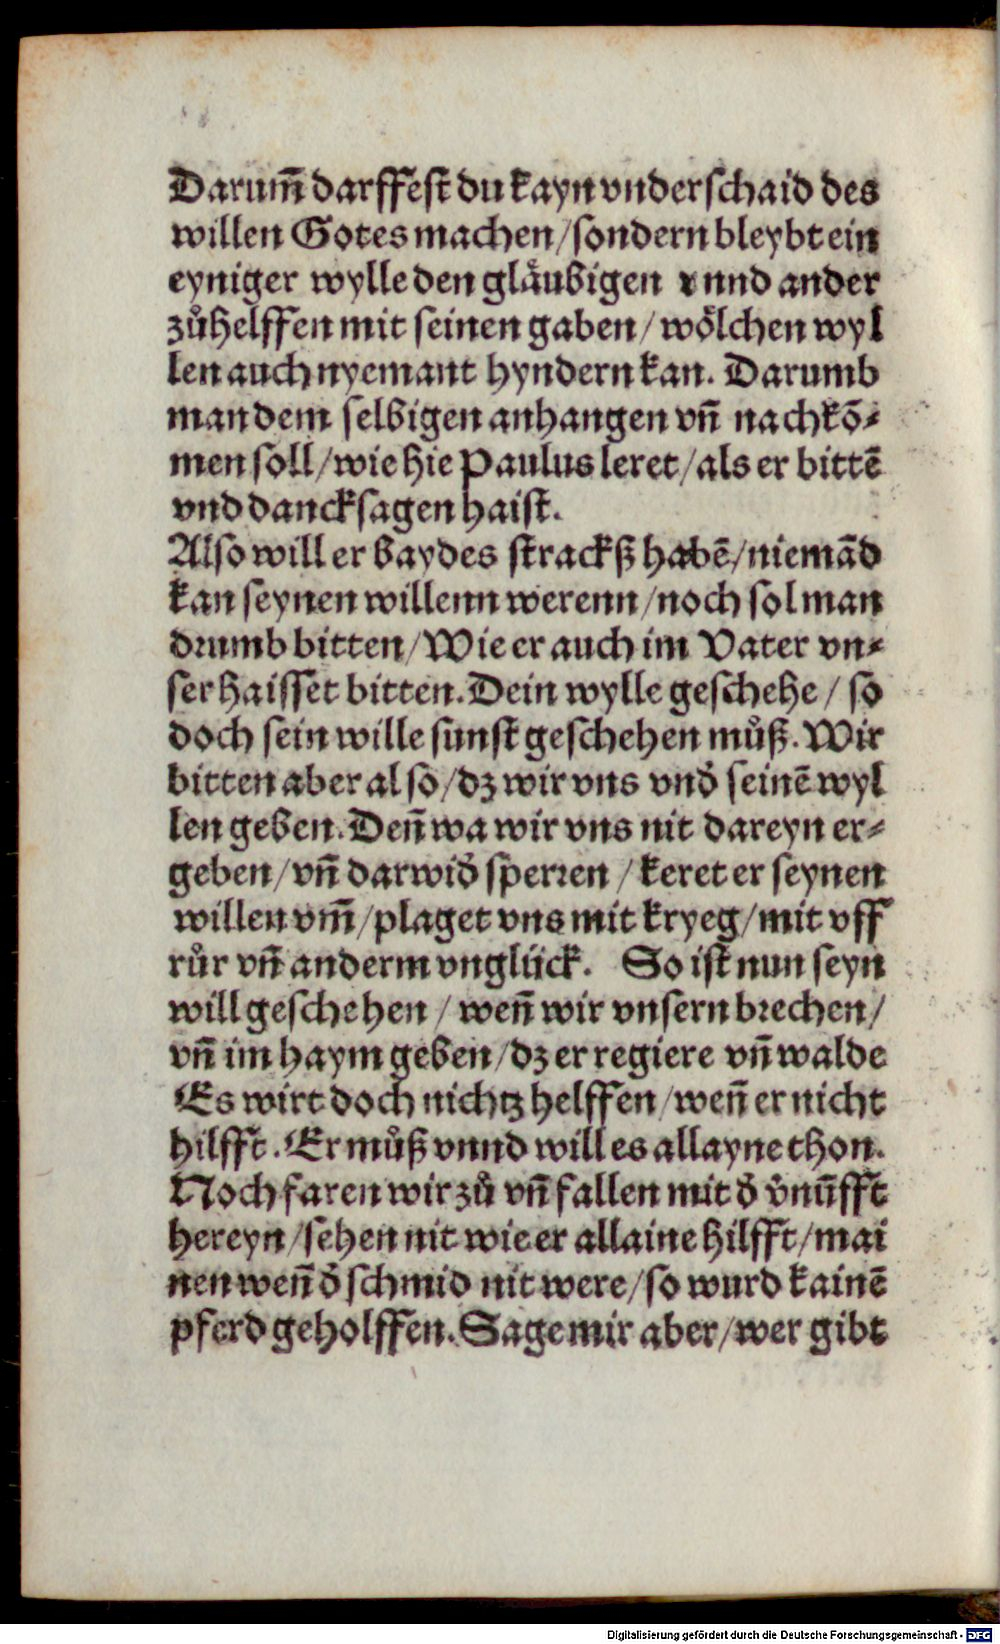 Darum̃ darffest du kayn vnderschaid des
willen Gotes machen/sondern bleybt ein
eyniger wylle den gläubigen vnnd ander
zůhelffen mit seinen gaben/ wölchen wyl
len auch nyemant hyndern kan. Darumb
man dem selbigen anhangen vñ nachkõ⸗
men soll/wie hie Paulus leret/als er bittẽ
vnd dancksagen haist.
Also will er baydes strackß habẽ/niemãd
kan seynen willenn werenn/noch sol man
drumb bitten/Wie er auch im Vater vn⸗
ser haisset bitten. Dein wylle geschehe/ so
doch sein wille sunst geschehen můß. Wir
bitten aber also/dz wir vns vnď seinẽ wyl
len geben. Deñ wa wir vns nit dareyn er⸗
geben/vñ darwiď sperren/ keret er seynen
willen vm̃/plaget vns mit kryeg/mit vff
růr vñ anderm vnglück. So ist nun seyn
will geschehen/ weñ wir vnsern brechen/
vñ im haym geben/dz er regiere vñ walde
Es wirt doch nichtz helffen/weñ er nicht
hilfft. Er můß vnnd will es allayne thon.
Noch faren wir zů vñ fallen mit ď v̓nũfft
hereyn/sehen nit wie er allaine hilfft/mai
nen weñ ď schmid nit were/so wurd kainẽ
pferd geholffen. Sage mir aber/wer gibt
Digitalisierung gefördert durch die Deutsche Forschungsgemeinschaft - DFG